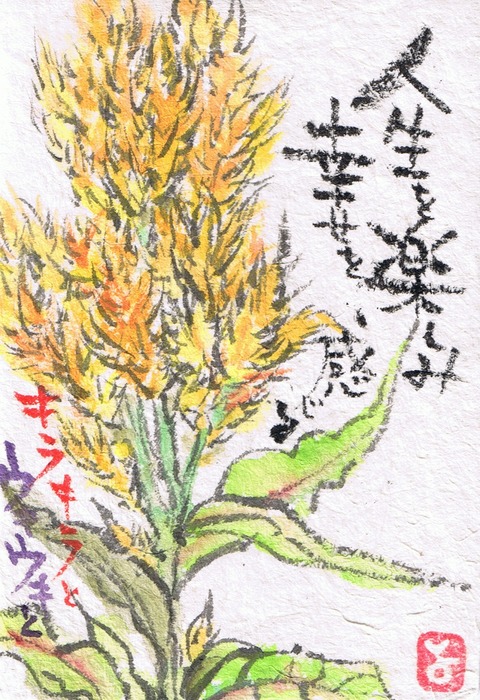 人生を楽しみ
幸せを
感じ
キラキラと
ウキウキと
とよ